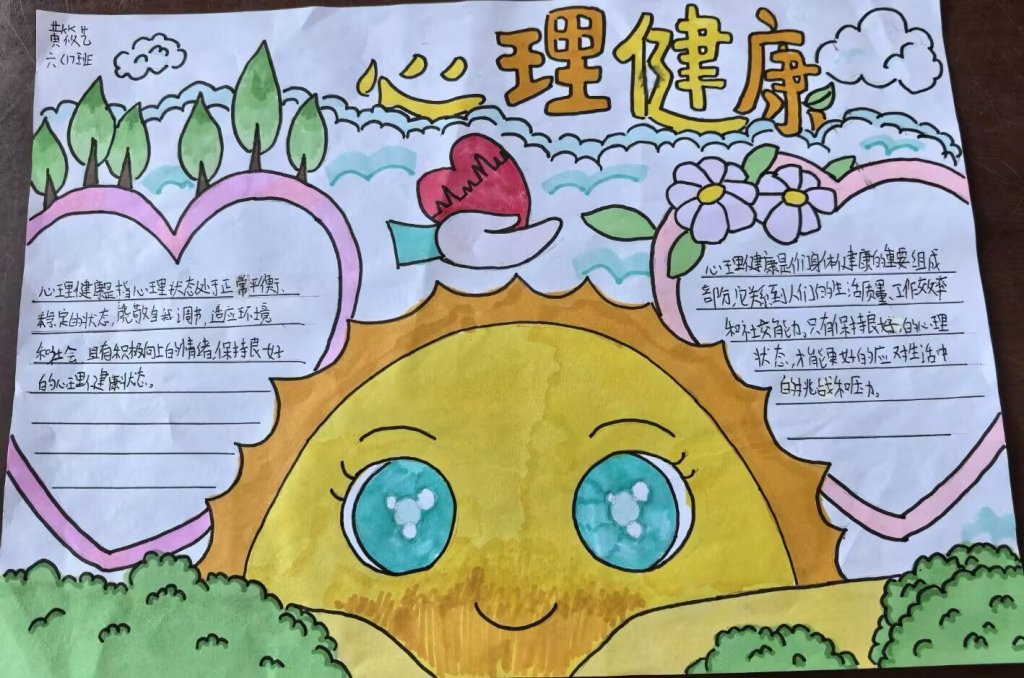 黄筱艺
六(1)班
心理健康
心理健康是指心理状态处于正常平衡、
稳定的状态,能敬自我调节,适应环境
和社会,且有积极向上的情绪,保持良好
的心理健康状态。
心理健康是们身体健康的重要组成
部分,它关系到人们的生活质量、工作效率
和社交能力,只有保持良好,的心理
状态,才能更好的应对生活中
的挑战和压力。